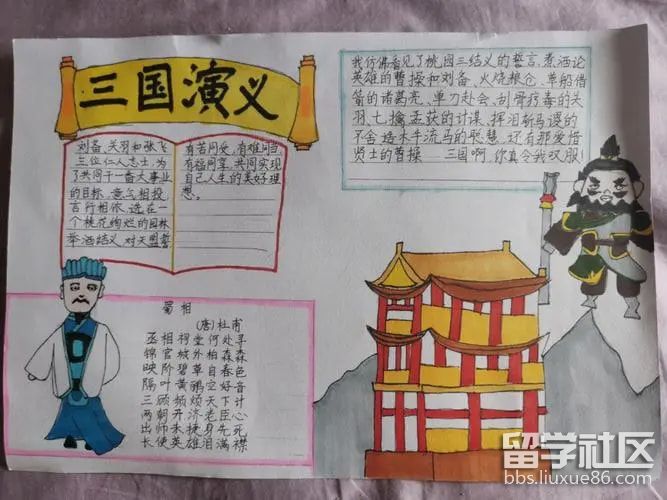 三国演义
刘备、关羽和张飞
三位仁人志士,为
了共同干一番大事业
的目标,意气相投,
言行相依,选在一
个桃花绚烂的园林
举酒结义,对天盟誓
有苦同受,有难同当
有福同享,共同实现
自己人生的美好理
想。
我仿佛看见了桃园三结义的誓言,煮酒论
英雄的曹操和刘备、火烧粮仓、草船借
箭的诸葛亮、单刀赴会、刮骨疗毒的关
羽、七擒孟获的计谋、挥泪斩马谡的
不舍、造木牛流马的聪慧,还有那爱惜
贤士的曹操——三国啊,你真令我叹服!
蜀相
(唐)杜甫
丞相祠堂何处寻
锦官城外柏森森
映阶碧草自春色
隔叶黄鹂空好音
三顾频烦天下计
两朝开济老臣心
出师未捷身先死
长使英雄泪满襟
留学社区
bbs.liuxue86.com